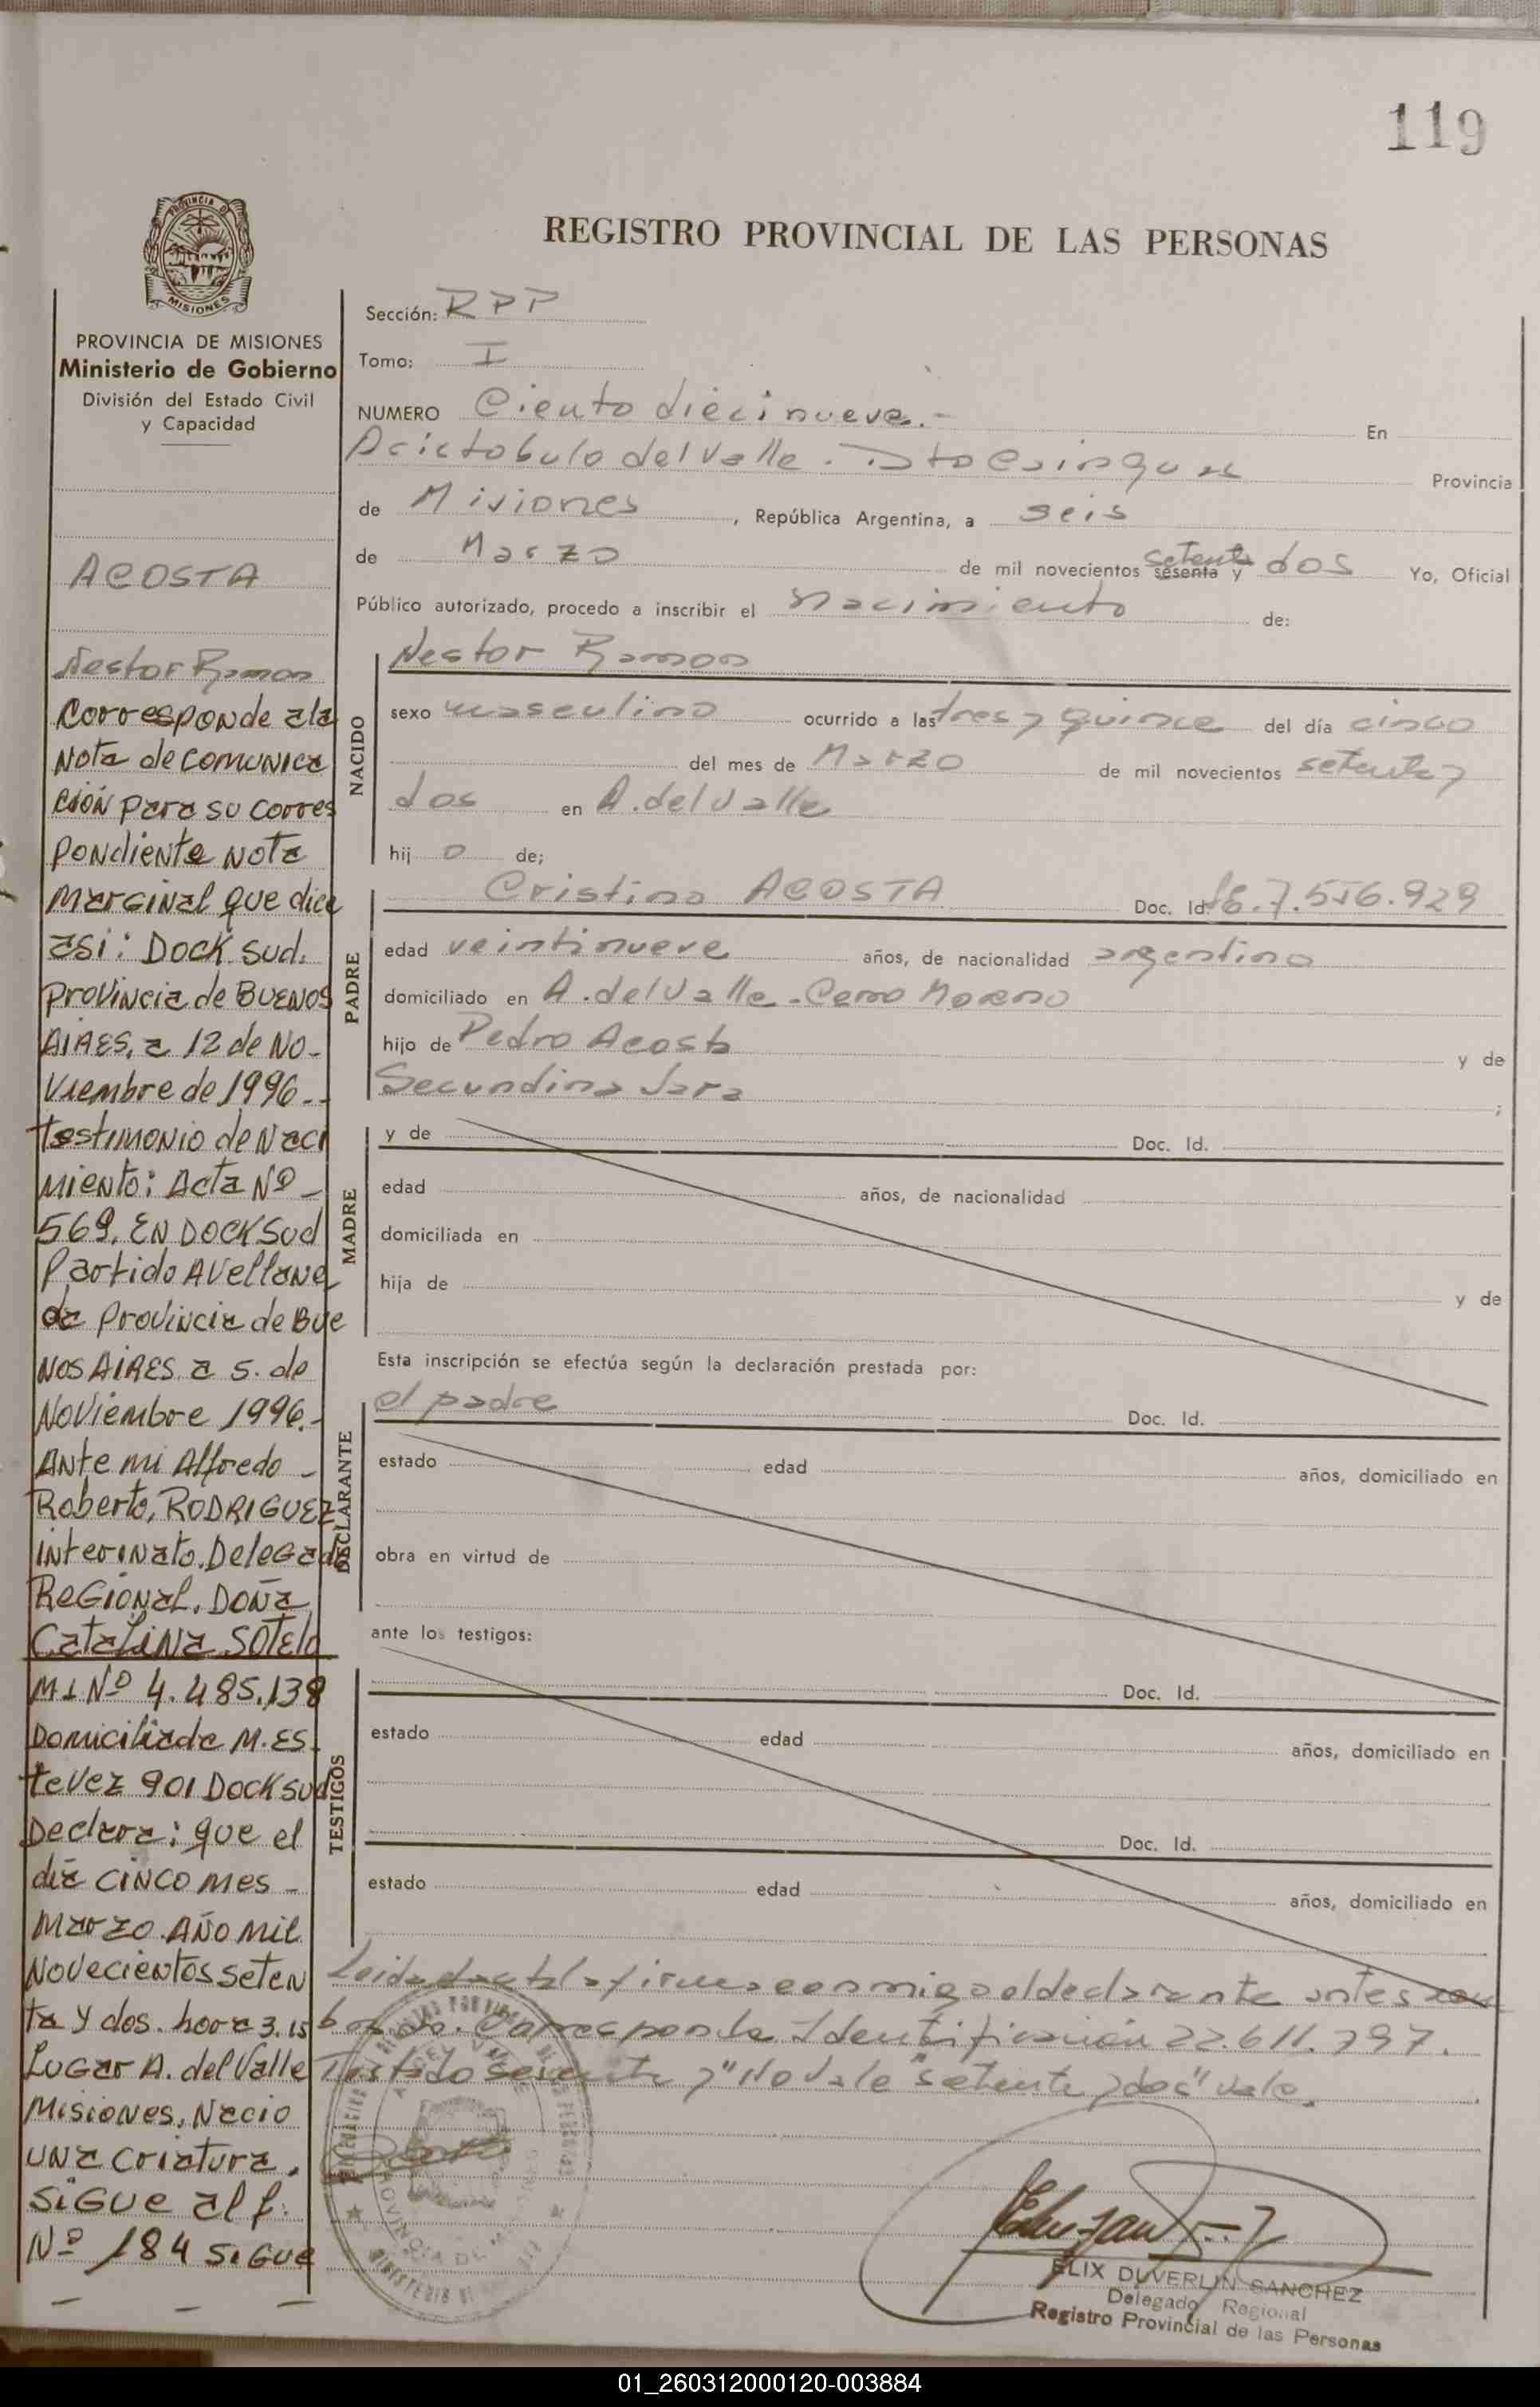 119
REGISTRO PROVINCIAL DE LAS PERSONAS
PROVINCIA DE MISIONES
Ministerio de Gobierno
División del Estado Civil
y Capacidad
ACOSTA
Nestor Ramon
Corresponde a la
Nota de comunica
ción para su corres
pondiente nota
marginal que dice
asi: Dock Sud.
Provincia de BUENOS
AIRES, a 12 de No-
viembre de 1996.-
testimonio de Naci
miento: Acta Nº
569. EN DOCK SUd
Partido Avellane
da Provincia de Bue
NOS AIRES a 5. de
Noviembre 1996.-
Ante mi Alfredo -
Roberto, RODRIGUEZ
interinato. Delegado
Regional. Doña
Catalina SOTELO
M.I. Nº 4.485.138
Domiciliada M. ES
tevez 901 Dock sud
Declara: que el
dia CINCO mes -
Marzo. AÑO mil
Novecientos seten
ta y dos. hora 3.15
Lugar A. del Valle
Misiones, Nacio
una criatura.
SIGUE al f.
Nº 184 SIGUE
Sección: RPP
Tomo: I
NUMERO Ciento diecinueve.- En
Aristobulo del Valle. Dto Cainguas Provincia
de Misiones, República Argentina, a seis
de Marzo de mil novecientos sesenta y setenta dos Yo, Oficial
Público autorizado, procedo a inscribir el nacimiento de:
NACIDO
Nestor Ramon
sexo masculino ocurrido a las tres y quince del día cinco
del mes de Marzo de mil novecientos setenta y
dos en A. del Valle
hijo de;
PADRE
Cristino ACOSTA Doc. Id. 7.556.929
edad veintinueve años, de nacionalidad argentino
domiciliado en A. del Valle - Cerro Moreno
hijo de Pedro Acosta y de
Secundina Jara ;
MADRE
y de Doc. Id.
edad años, de nacionalidad
domiciliada en
hija de y de
Esta inscripción se efectúa según la declaración prestada por:
DECLARANTE
el padre Doc. Id.
estado edad años, domiciliado en
obra en virtud de
ante los testigos:
TESTIGOS
Doc. Id.
estado edad años, domiciliado en
Doc. Id.
estado edad años, domiciliado en
Leida el acta la firma conmigo el declarante antes
Corresponde Identificación 22.611.797.
Testado sesenta y "No vale "setenta y dos" vale.
ELIX DUVERLIN SANCHEZ
Delegado Regional
Registro Provincial de las Personas
01_260312000120-003884